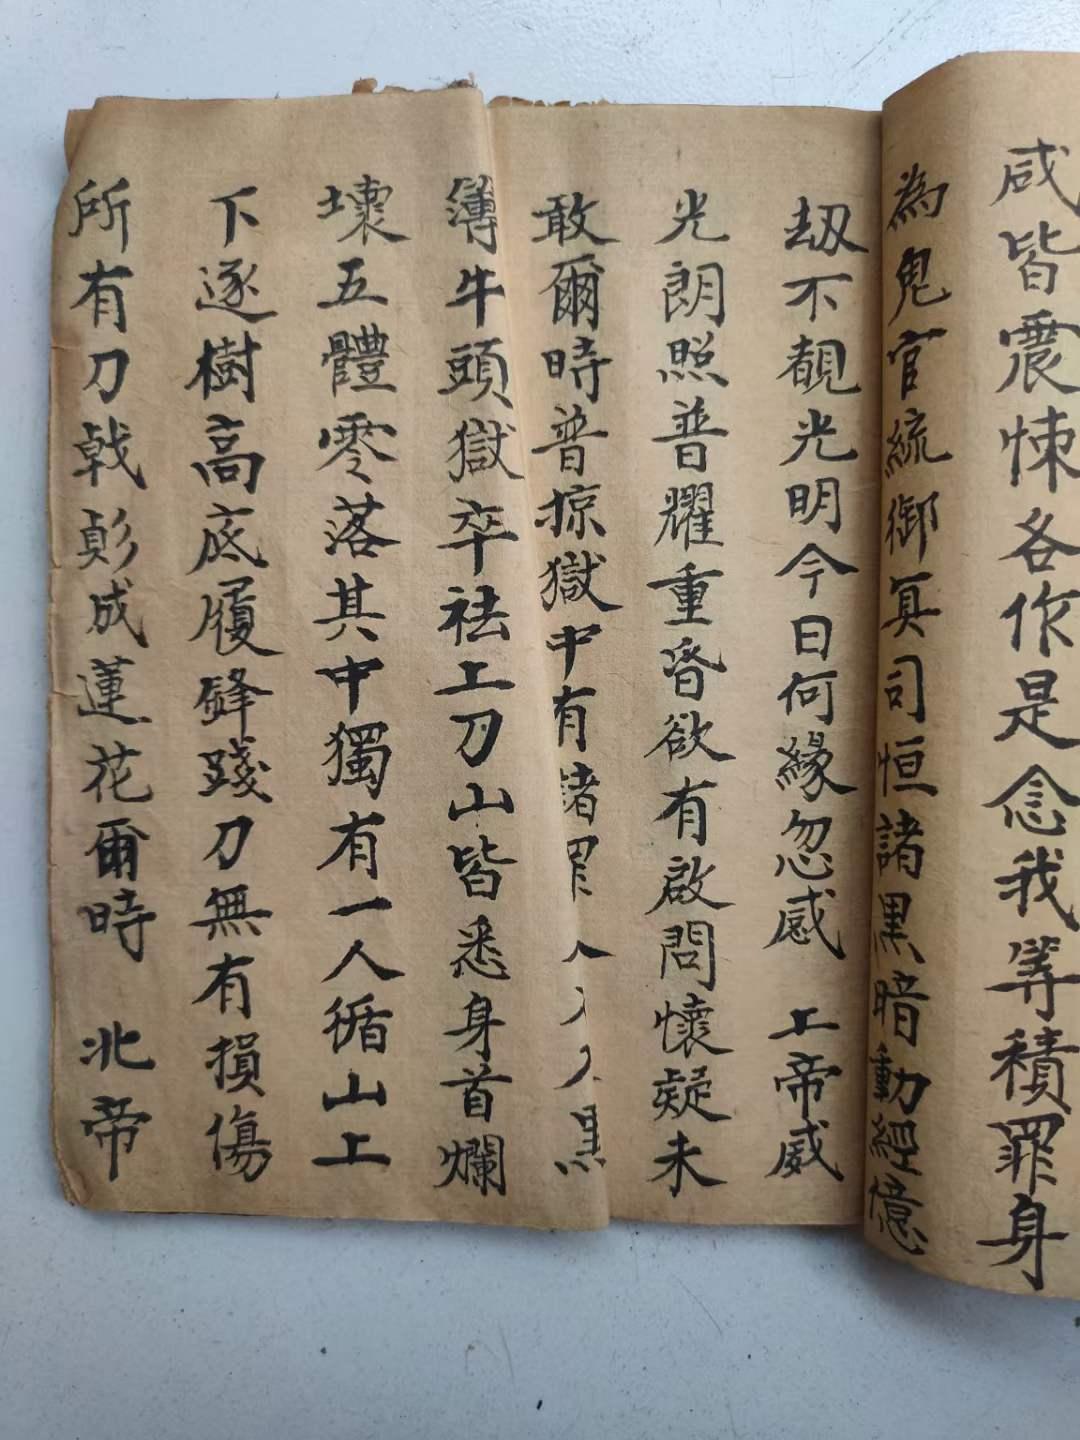 咸皆震悚各作是念我等積罪身
為鬼官統御冥司恒諸黑暗動經億
刼不覩光明今日何緣忽感 上帝威
光朗照普耀重昏欲有啟問懷疑未
敢爾時普掠獄中有諸罪人
簿牛頭獄卒袪上刀山皆悉身首爛
壞五體零落其中獨有一人循山上
下逐樹高底履鋒踐刀無有損傷
所有刀戟彭成蓮花爾時 北帝